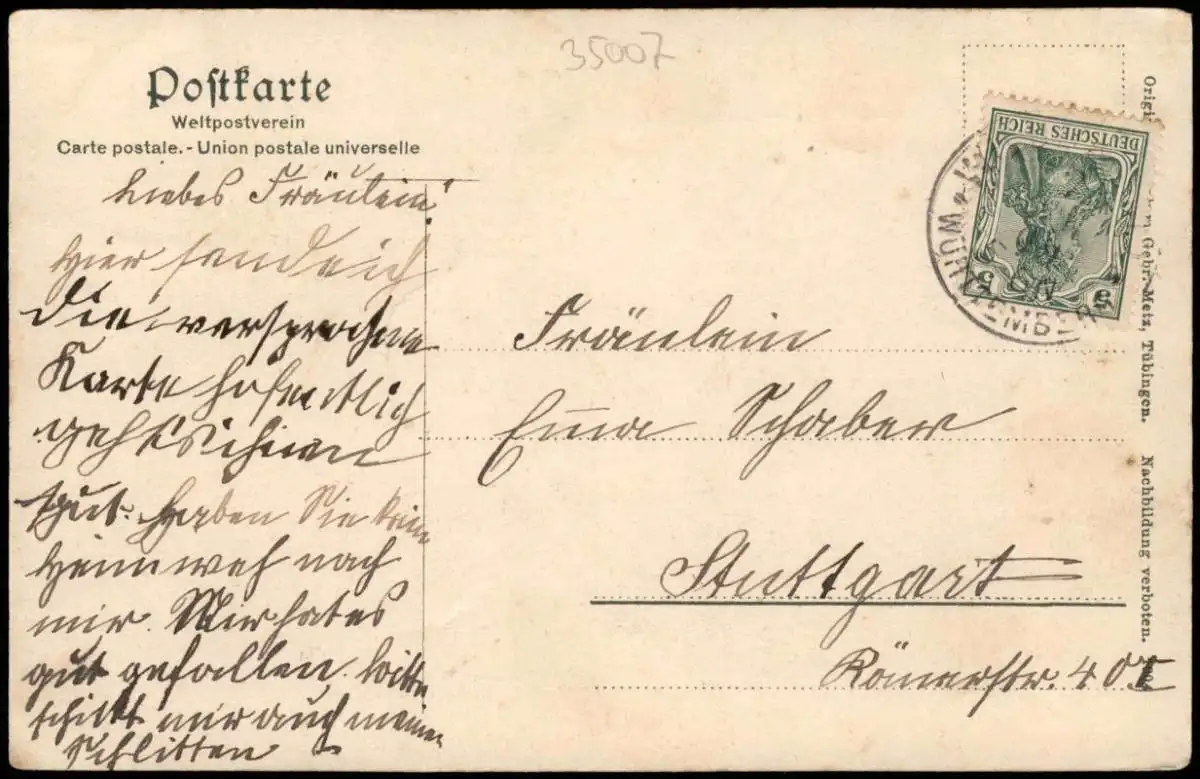 35007
Postkarte
Weltpostverein
Carte postale. - Union postale universelle
Liebes Fräulein!
Hier send ich
die versprochne
Karte hofentlich
geht's ihnen
gut. Haben Sie kein
Heimweh nach
mir. Mir hat es
gut gefallen. bitte
schikt mir auch meinen
Schlitten
DEUTSCHES REICH
5 5
Fräulein
Emma Schaber
Stuttgart
Römerstr. 40
Gebr. Metz, Tübingen. Nachbildung verboten.